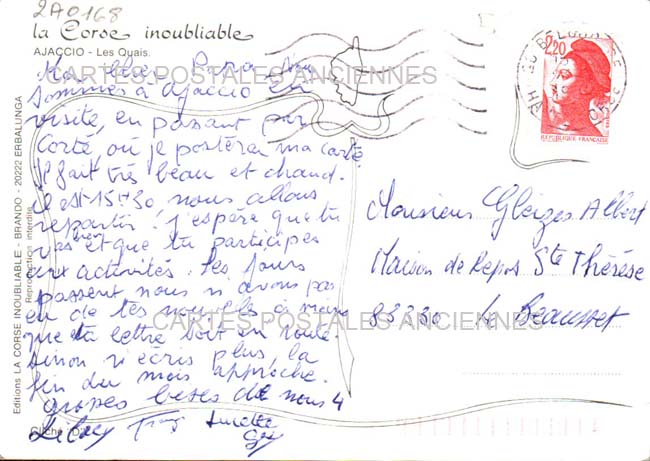 2A0168
la Corse inoubliable
AJACCIO - Les Quais.
CARTES POSTALES ANCIENNES
Mon cher Papa
sommes à Ajaccio en
visite, en passant par
Corté, où je posterai ma carte
Il fait très beau et chaud.
il est 15H30 nous allons
repartir. J'espère que tu
vas bien et que tu participes
aux activités. Les jours
passent nous n'avons pas
eu de tes nouvelles à moins
que ta lettre soit en route.
Sinon n'écris plus, la
fin du mois approche.
grosses bises de nous 4
Lucette
Cliché
Editions LA CORSE INOUBLIABLE - BRANDO - 20222 ERBALUNGA
Reproduction interdite
2,20
REPUBLIQUE FRANÇAISE
Monsieur Gleizes Albert
Maison de Repos Ste Thérèse
83330 Le Beausset
CARTES POSTALES ANCIENNES